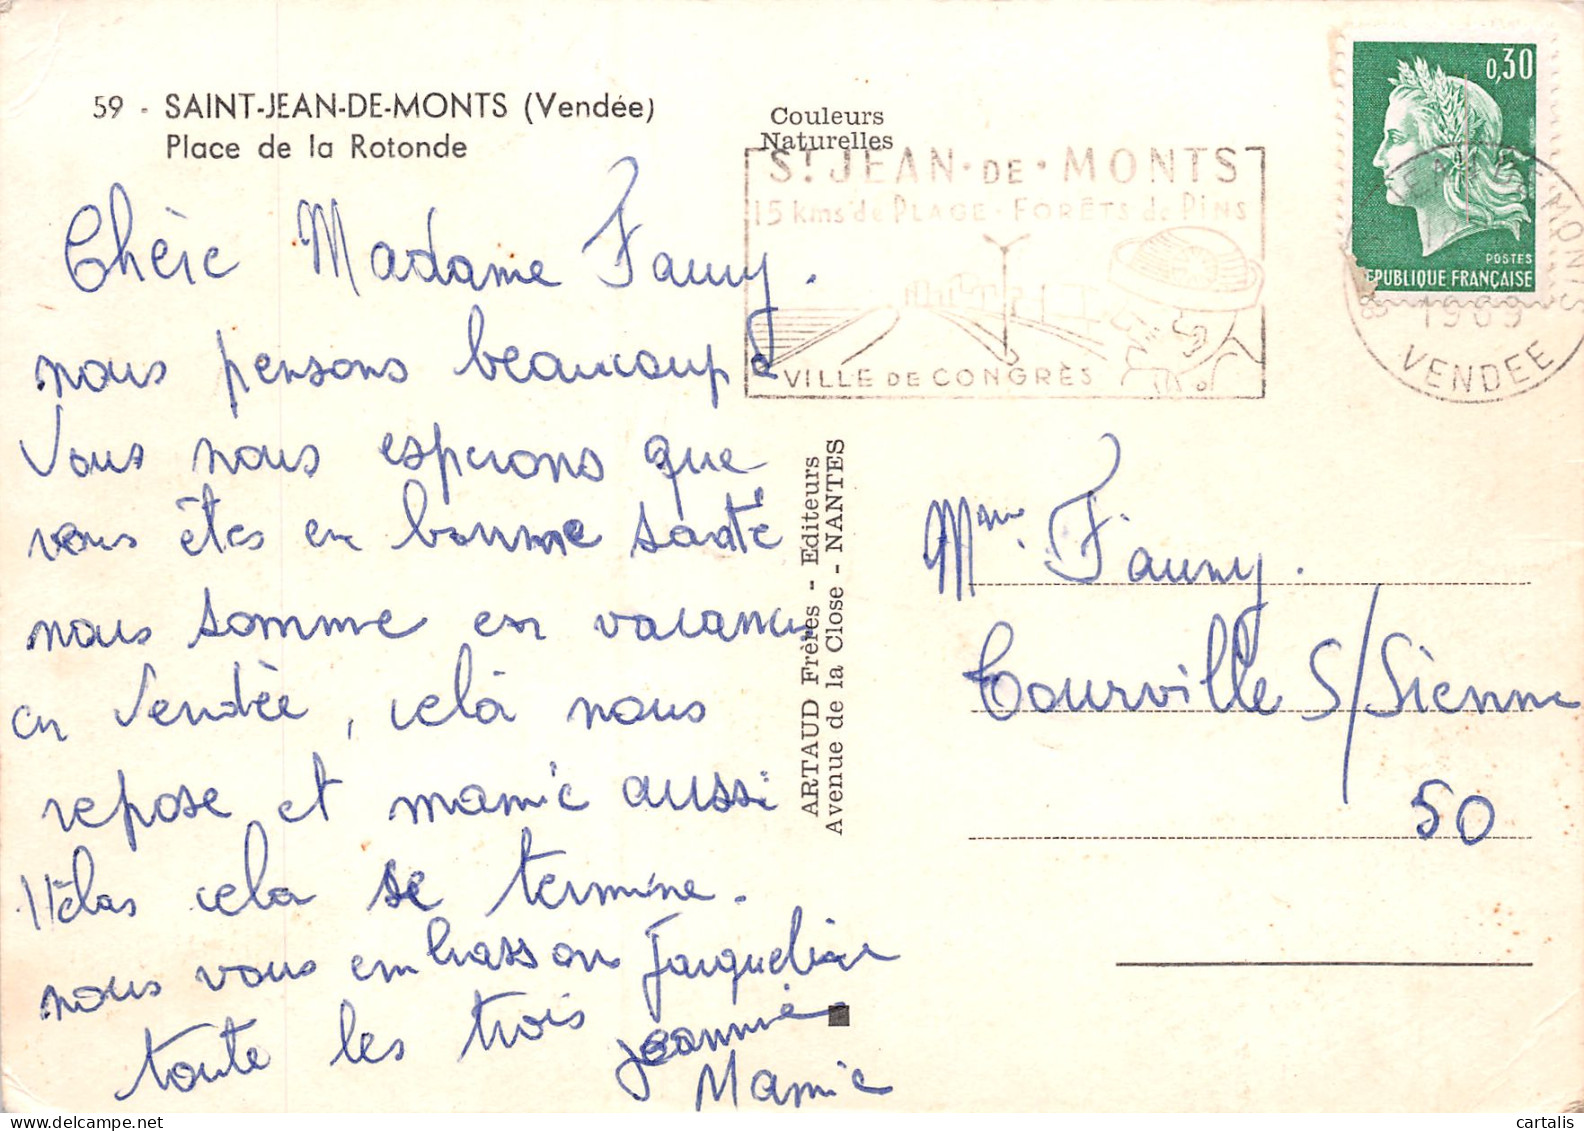 59 - SAINT-JEAN-DE-MONTS (Vendée)
Place de la Rotonde
Couleurs
Naturelles
St JEAN·DE·MONTS
15 kms de PLAGE - FORÊTS de PINS
VILLE DE CONGRÈS
0,30
POSTES
REPUBLIQUE FRANÇAISE
JEAN DE MONTS
1969
VENDEE
Chère Madame Fauny.
nous pensons beaucoup à
Vous nous esperons que
vous êtes en bonne santé
nous somme en vacances
en Vendée, celà nous
repose et mamie aussi
Hélas cela se termine.
nous vous embrassons Jacqueline
toute les trois Jeannine
Mamie
ARTAUD Frères - Editeurs
Avenue de la Close - NANTES
Mme Fauny.
Tourville S/Sienne
50
cartalis